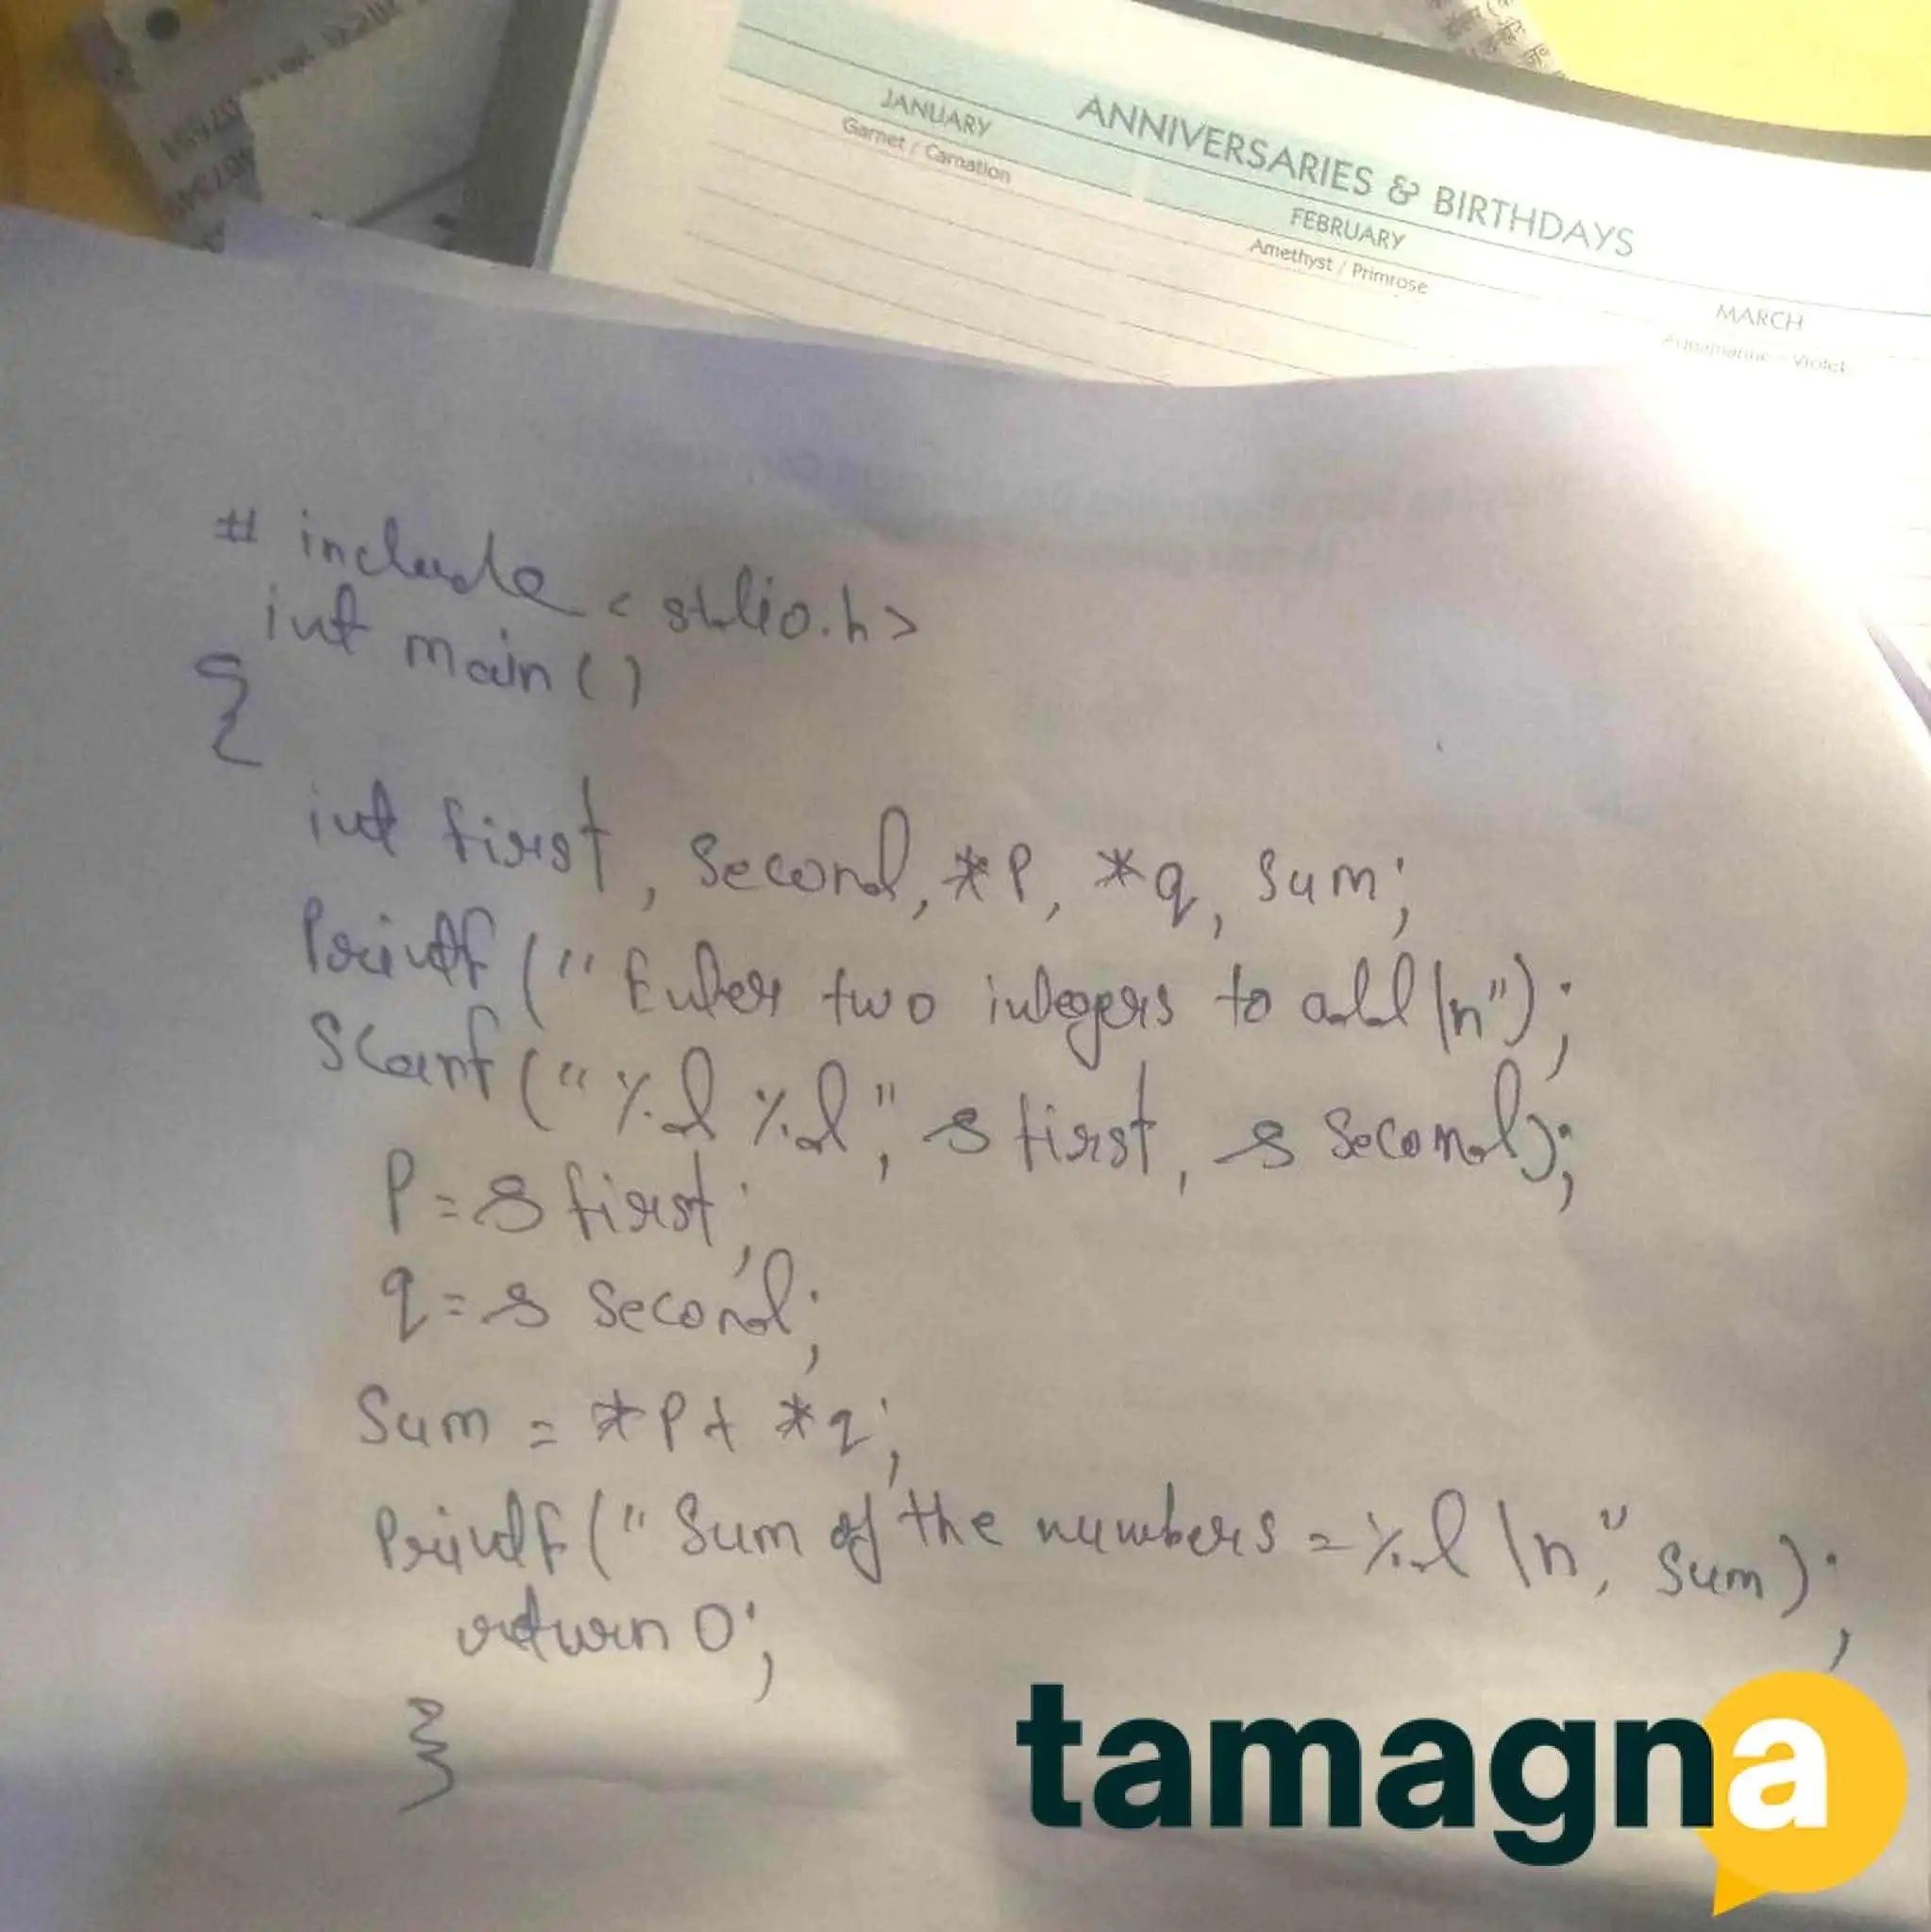 ANNIVERSARIES & BIRTHDAYS
JANUARY
Garnet / Carnation
FEBRUARY
Amethyst / Primrose
MARCH
Aquamarine - Violet
# include < stdio.h>
int main()
{
int first, second, *p, *q, sum;
Printf ("Enter two integers to add \n");
Scanf ("%d %d", & first, & second);
P = & first;
q = & second;
Sum = *p + *q;
Printf ("Sum of the numbers = %d \n", sum);
return 0;
}
tamagna